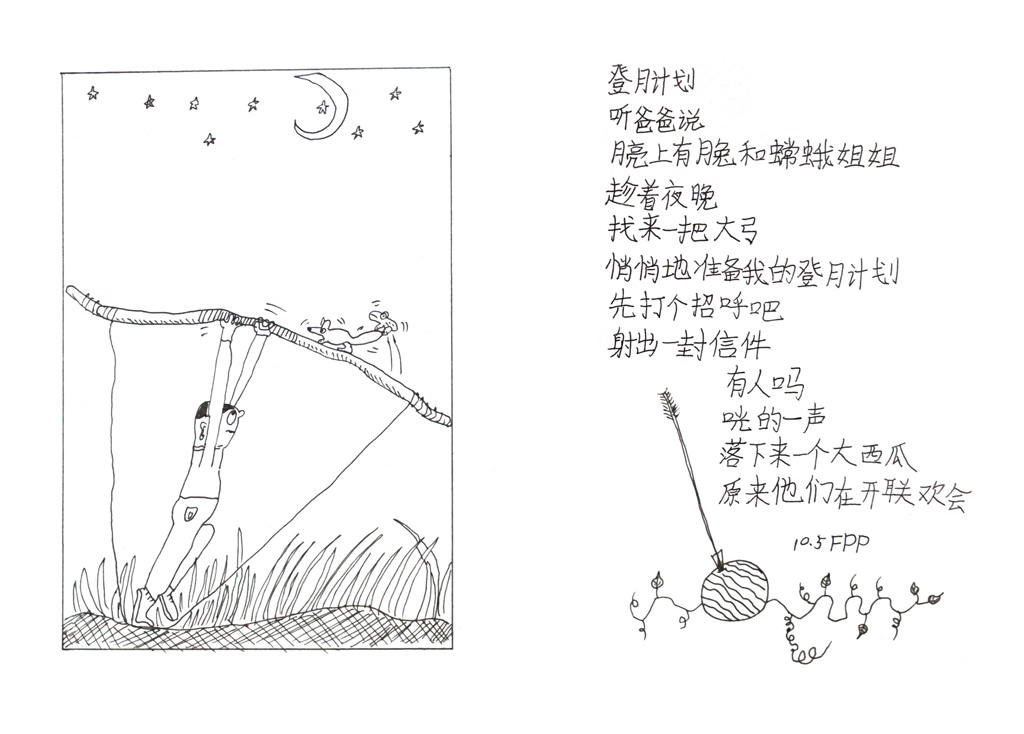 登月计划
听爸爸说
月亮上有月兔和嫦娥姐姐
趁着夜晚
找来一把大弓
悄悄地准备我的登月计划
先打个招呼吧
射出一封信件
有人吗
咣的一声
落下来一个大西瓜
原来他们在开联欢会
10.5 FPP